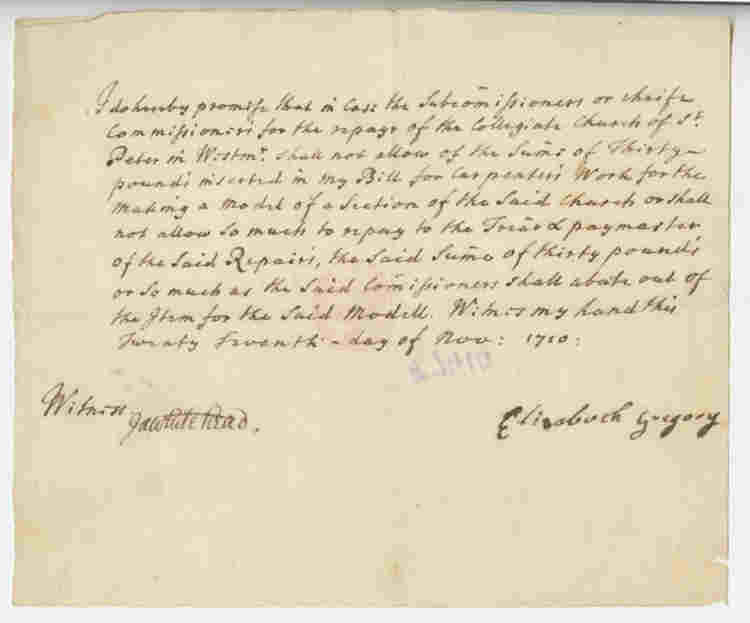 I do hereby promise that in Case the Subcomissioners or cheife
Commissioners for the repayr of the Collegiate Church of St.
Peter in Westmr. shall not allow of the Sume of Thirty
pounds inserted in my Bill for Carpenters Work for the
Making a Model of a Section of the Said Church or shall
not allow so much to repay to the Treār & paymaster
of the Said Repairs, the Said Sume of thirty pounds
or so much as the Said Comissioners shall abate out of
the Item for the Said Modell. Witnes my hand this
Twenty Seventh day of Nov: 1710:
Witness
Ja Whitehead.
Elizabeth Gregory